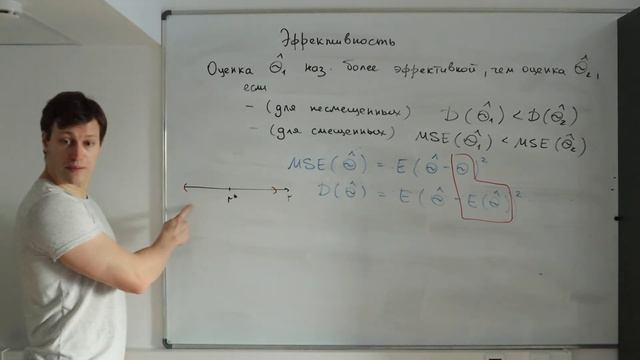 Эффективность
Оценка Θ̂₁ наз. более эффективной, чем оценка Θ̂₂,
если
- (для несмещенных) D(Θ̂₁) < D(Θ̂₂)
- (для смещенных) MSE(Θ̂₁) < MSE(Θ̂₂)
MSE(Θ̂) = E(Θ̂ - Θ)²
D(Θ̂) = E(Θ̂ - E(Θ̂))²